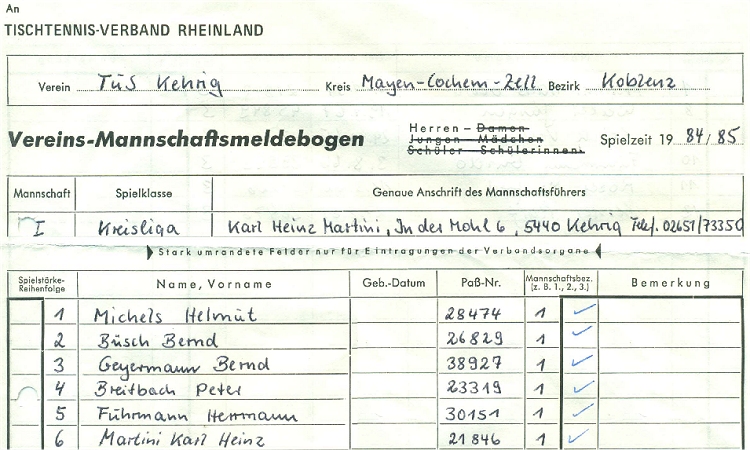 An
TISCHTENNIS-VERBAND RHEINLAND
Verein TuS Kehrig Kreis Mayen-Cochem-Zell Bezirk Koblenz
Vereins-Mannschaftsmeldebogen Herren – Damen Spielzeit 19 84/85
Jungen – Mädchen
Schüler – Schülerinnen
Mannschaft Spielklasse Genaue Anschrift des Mannschaftsführers
I Kreisliga Karl Heinz Martini, In der Mohl 6, 5440 Kehrig Telef. 02651/73350
Stark umrandete Felder nur für Eintragungen der Verbandsorgane
Spielstärke-Reihenfolge Name, Vorname Geb.-Datum Paß-Nr. Mannschaftsbez. (z. B. 1., 2., 3.) Bemerkung
1 Michels Helmut 28474 1
2 Büsch Bernd 26829 1
3 Geyermann Bernd 38927 1
4 Breitbach Peter 23319 1
5 Fuhrmann Herrmann 30151 1
6 Martini Karl Heinz 21846 1